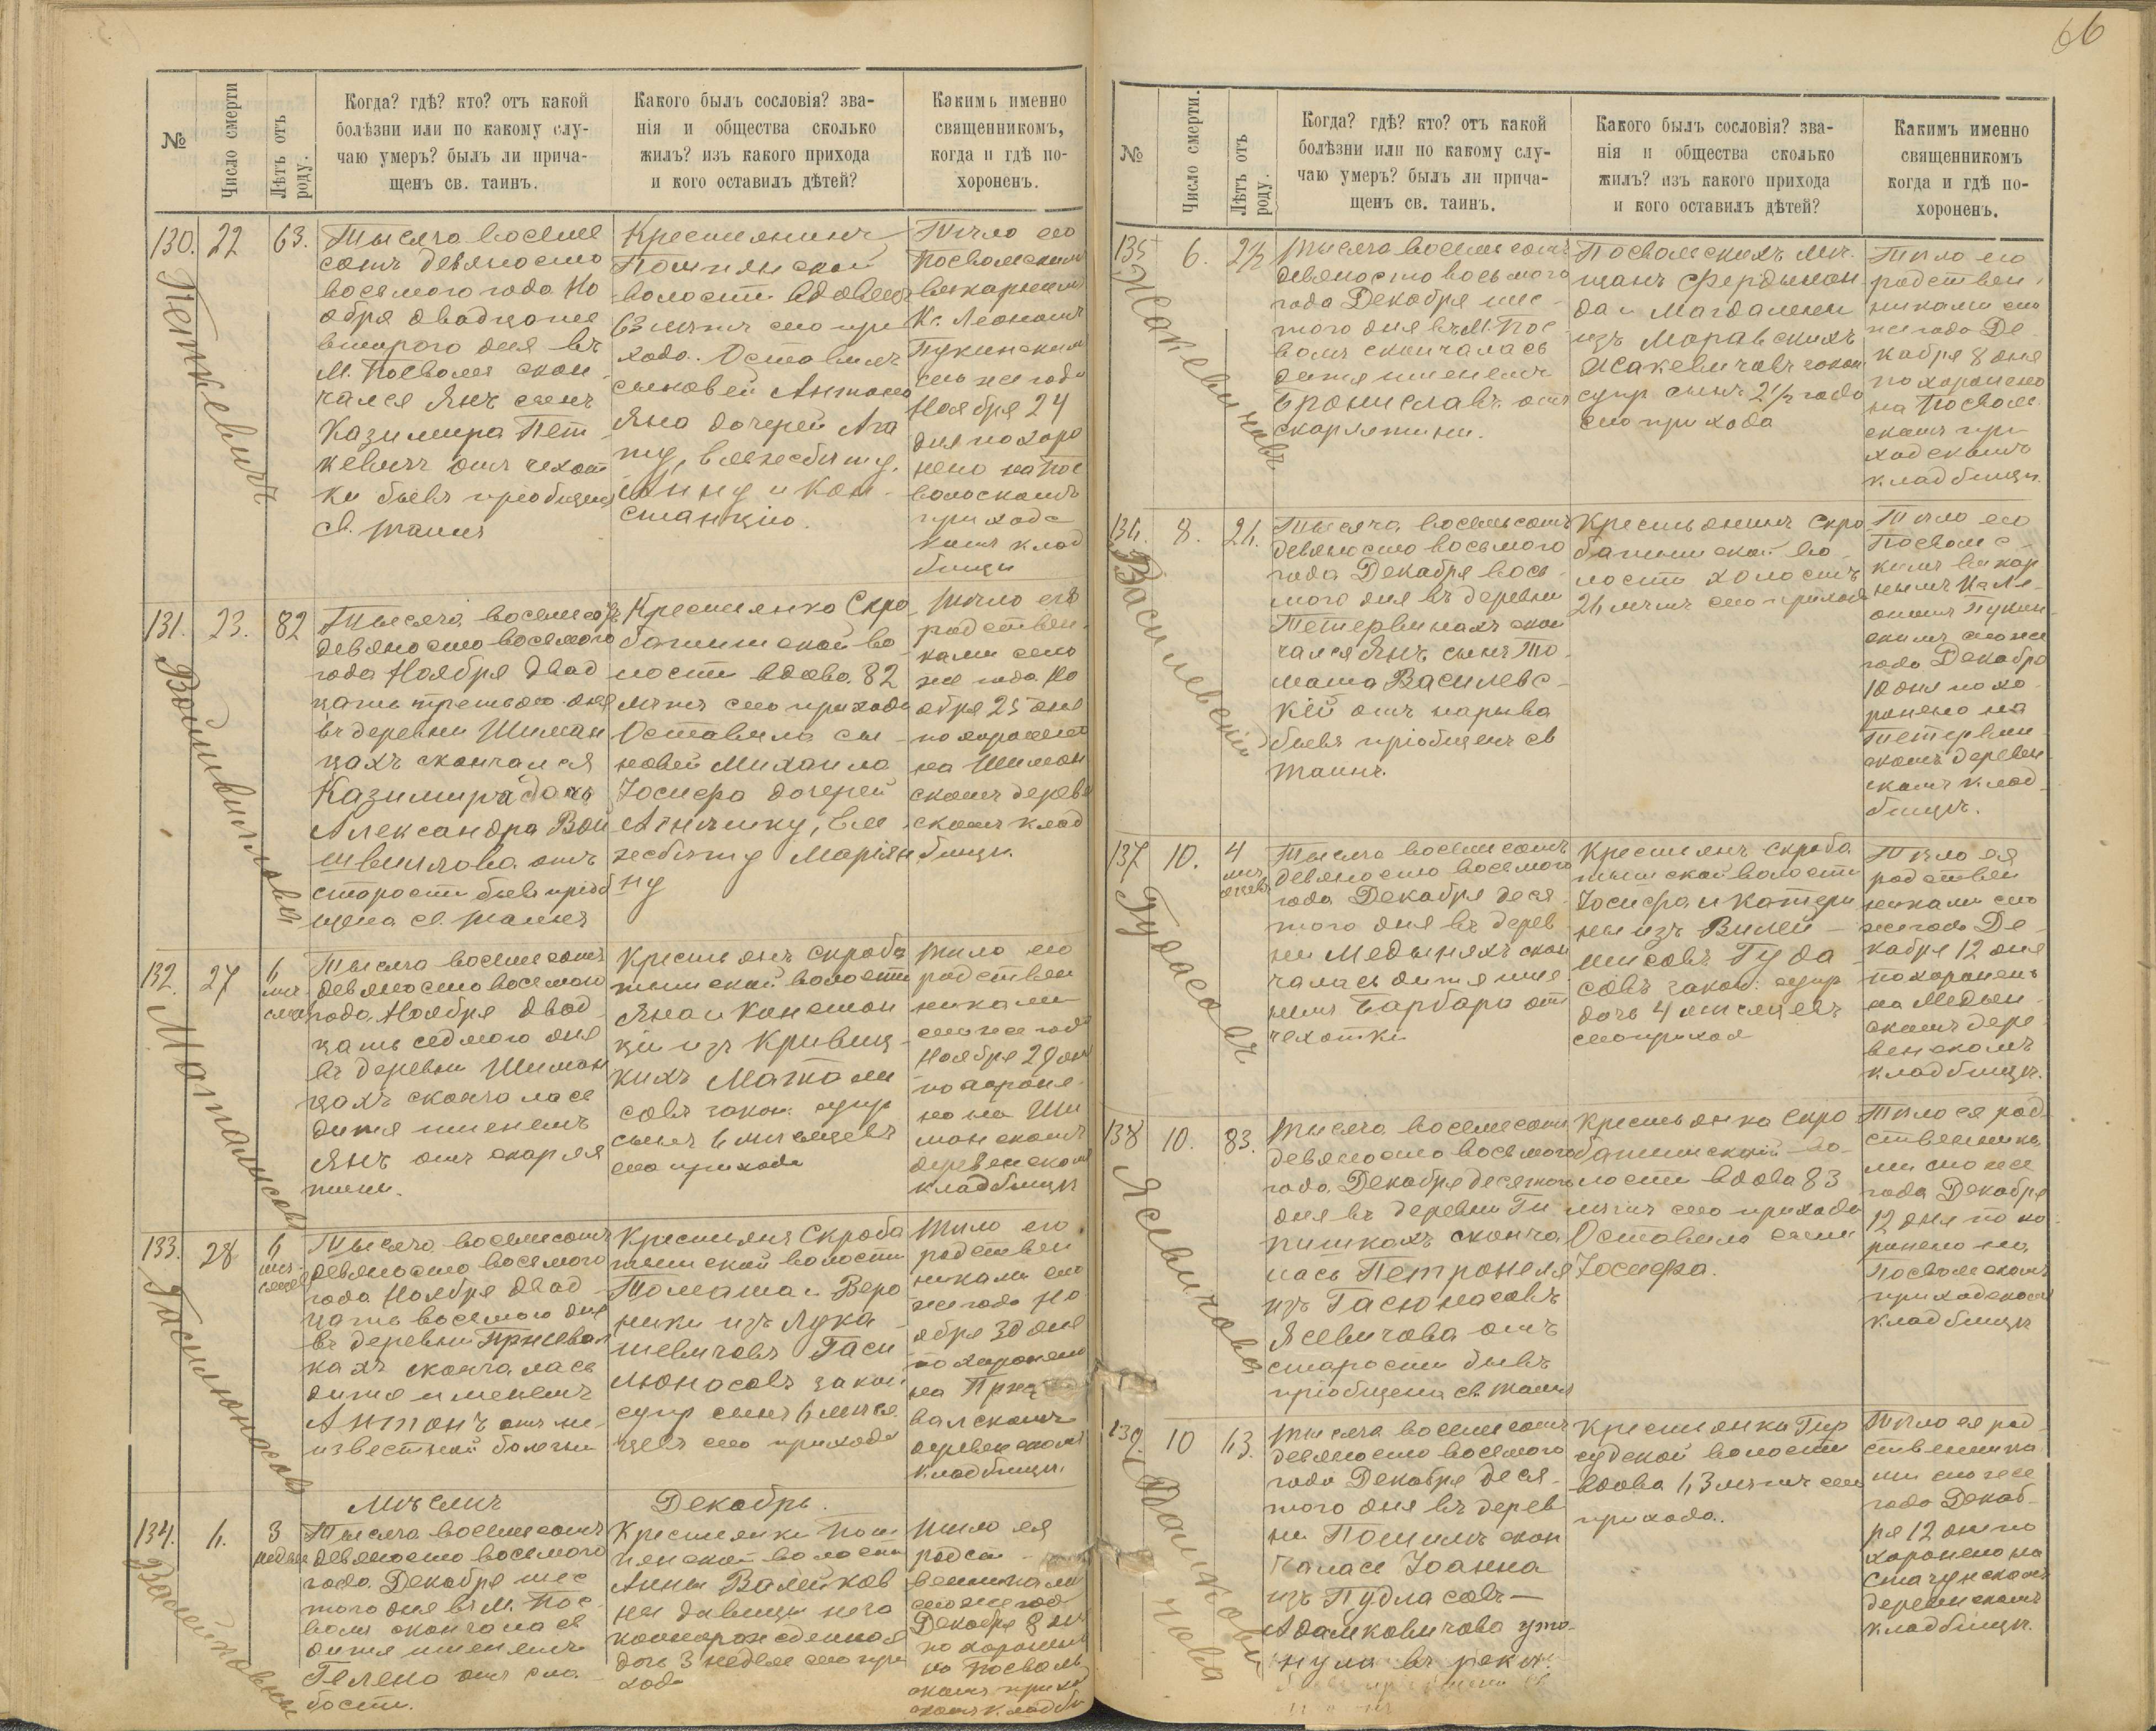 66
№
Число смерти
Лѣтъ отъ
роду.
Когда? гдѣ? кто? отъ какой
болѣзни или по какому слу-
чаю умеръ? былъ ли прича-
щенъ св. таинъ.
Какого былъ сословія? зва-
нія и общества сколько
жилъ? изъ какого прихода
и кого оставилъ дѣтей?
Какимъ именно
священникомъ,
когда и гдѣ по-
хороненъ.
130.
22
63.
Петкевичъ
Тысяча восемь
сотъ девяносто
восьмого года Но
ября двадцать
второго дня въ
М. Посволя скон
чался Янъ сынъ
Казимира Пет
кевичъ отъ чехот
ки бывъ пріобщенъ
св. таинъ
Крестьянинъ
волости вдовецъ
63 лѣтъ сего при
хода. Оставилъ
сыновей Антона
Яна дочерей Ага
ту, Елисбету,
Анну и Кон
станцію.
Тѣло его
Посвольскимъ
викарнымъ
Кс. Леономъ
Пукинскимъ
сего же года
Ноября 24
дня похоро
нено на Пос
вольскомъ
приходс
комъ клад
бищи
131.
23.
82
Войшвиллова
Тысяча восемьсотъ
девяносто восьмого
года Ноября двад
цать третьяго дня
въ деревни Шиман
цахъ скончался
Казимира дочь
Александра Вой
швиллова отъ
старости бывъ пріоб
щена св. таинъ
Крестьянка Скро
батишской во
лости вдова 82
лѣтъ сего прихода
Оставила сы
новей Михаила
Іосифа дочерей
Маріян
ну
Тѣло его
родствен
ками сего
же года Но
ября 25 дня
похоронено
на Шиман
скомъ дерев
скомъ клад
бищи.
132.
27
6
мѣ
сяцевъ
Тысяча восемьсотъ
девяносто восьмого
года Ноября двад
цать седьмого дня
въ деревни Шиман
цахъ скончалась
дитя именемъ
Янъ отъ скарля
тины.
Крестьянъ Скроба
тишской волости
Яна и Констан
ціи изъ Кривиц
кихъ
совъ закон. супр
сынъ 6 мѣсяцевъ
сего прихода
Тѣло его
родствен
никами
сего же года
Ноября 29 дня
похороне
но на Ши
манскомъ
деревенскомъ
кладбищи
133.
28
6
мѣ
сяцевъ
Тысяча восемьсотъ
девяносто восьмого
года Ноября двад
цать восьмого дня
въ деревни
кахъ скончалась
дитя именемъ
Антонъ отъ не
известной болезни
Крестьянъ Скроба
тишской волости
Томаша и Веро
ники изъ Лука
шевичовъ Гаси
люносовъ закон
супр сынъ 6 мѣся
цевъ сего прихода
Тѣло его
родствен
никами сего
же года Но
ября 30 дня
похоронено
на
вальскомъ
деревенскомъ
кладбищи.
Мѣсяцъ Декабрь.
134.
6.
3
недели
Тысяча восемьсотъ
девяносто восьмого
года Декабря шес
того дня въ М. Пос
воли скончалась
дитя именемъ
Гелена отъ сла
бости.
Крестьянки
волости
Анны Валейков
ны давицы неза
коннорожденная
дочь 3 недели сего при
хода
Тѣло ея
родст
венниками
сего же года
Декабря 8 дня
похоронено
на Посволь
скомъ приход
скомъ кладби
№
Число смерти.
Лѣтъ отъ
роду.
Когда? гдѣ? кто? отъ какой
болѣзни или по какому слу-
чаю умеръ? былъ ли прича-
щенъ св. таинъ.
Какого былъ сословія? зва-
нія и общества сколько
жилъ? изъ какого прихода
и кого оставилъ дѣтей?
Какимъ именно
священникомъ
когда и гдѣ по-
хороненъ.
135
6.
2½
Жакевичовъ
Тысяча восемьсотъ
девяносто восьмого
года Декабря шес
того дня въ М. Пос
воль скончалась
дитя именемъ
Брониславъ отъ
скарлятины.
Посвольскихъ мѣ
щанъ Фердинан
да и Магдалены
изъ Моравскихъ
Жакевичовъ закон
супр сынъ 2½ года
сего прихода
Тѣло его
родствен
никами сего
же года Де
кабря 8 дня
похоронено
на Посволь
скомъ при
ходскомъ
кладбищи.
136.
8.
26.
Василевскій
Тысяча восемьсотъ
девяносто восьмого
года Декабря вось
мого дня въ деревни
Тетервинахъ скон
чался Янъ сынъ То
маша Василевс
кій отъ нарыва
бывъ пріобщенъ св
таинъ.
Крестьянинъ Скро
батишской во
лости холостъ
26 лѣтъ сего прихода
Тѣло его
Посвольс
кимъ викар
нымъ Кс. Ле
ономъ Пукин
скимъ сего же
года Декабря
10 дня похо
ронено на
Тетервин
скомъ деревен
скомъ клад
бищи.
137
10.
4
мѣ
сяцевъ
Гудасовъ
Тысяча восемьсотъ
девяносто восьмого
года Декабря деся
того дня въ дерев
ни Медыняхъ скон
чалась дитя име
немъ Барбара отъ
чехотки
Крестьянъ Скроба
тишской волости
Іосифа и Катери
ны изъ
Гуда
совъ закон. супр
дочь 4 мѣсяцевъ
сего прихода
Тѣло ея
родствен
никами сего
же года Де
кабря 12 дня
похороненъ
на Медын
скомъ дере
венскомъ
кладбищи.
138
10.
83.
Ясевичова
Тысяча восемьсотъ
девяносто восьмого
года Декабря десятого
дня въ деревни Ги
пишкахъ сконча
лась Петронеля
изъ Гасюнасовъ
Ясевичова отъ
старости бывъ
пріобщена св таинъ
Крестьянка Скро
батишской во
лости вдова 83
лѣтъ сего прихода
Оставила сына
Іосифа.
Тѣло ея род
ственника
ми сего же
года Декабря
12 дня похо
ронено на
Посвольскомъ
приходскомъ
кладбищи
139.
10
63.
Адамковичова
Тысяча восемьсотъ
девяносто восьмого
года Декабря деся
того дня въ дерев
ни скон
чалась Іоанна
изъ Пудласовъ
Адамковичова уто
нула въ реки.
Крестьянка Гир
судской волости
вдова 63 лѣтъ сего
прихода.
Тѣло ея род
ственника
ми сего же
года Декаб
ря 12 дня по
хоронено на
деревенскомъ
кладбищи.